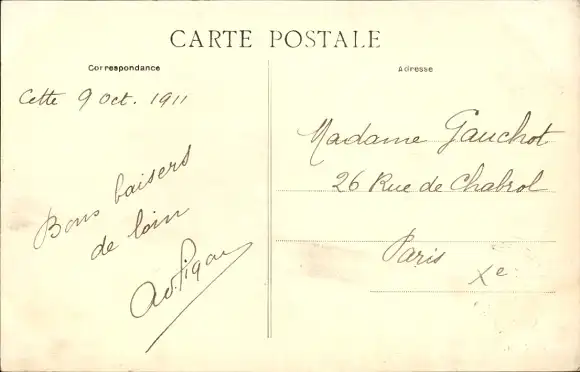 CARTE POSTALE
Correspondance
Cette 9 Oct. 1911
Bons baisers
de loin
Adresse
Madame Gauchot
26 Rue de Chabrol
Paris
Xe